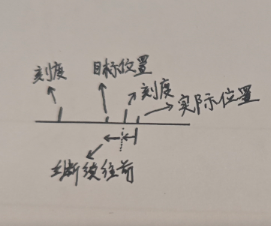 刻度
目标位置
刻度
实际位置
断续往前